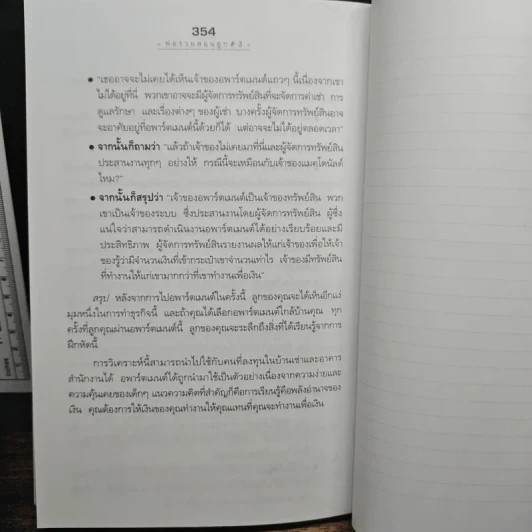 354
• พ่อรวยสอนลูก # 3 •
• "เธออาจจะไม่เคยได้เห็นเจ้าของอพาร์ตเมนต์แถวๆ นี้เนื่องจากเขา
ไม่ได้อยู่ที่นี่ พวกเขาอาจจะมีผู้จัดการทรัพย์สินที่จะจัดการค่าเช่า การ
ดูแลรักษา และเรื่องต่างๆ ของผู้เช่า บางครั้งผู้จัดการทรัพย์สินอาจ
จะอาศัยอยู่ที่อพาร์ตเมนต์นี้ด้วยก็ได้ แต่อาจจะไม่ได้อยู่ตลอดเวลา"
• จากนั้นก็ถามว่า "แล้วถ้าเจ้าของไม่เคยมาที่นี่และผู้จัดการทรัพย์สิน
ประสานงานทุกๆ อย่างให้ กรณีนี้จะเหมือนกับเจ้าของแมคโดนัลด์
ไหม?"
• จากนั้นก็สรุปว่า "เจ้าของอพาร์ตเมนต์เป็นเจ้าของทรัพย์สิน พวก
เขาเป็นเจ้าของระบบ ซึ่งประสานงานโดยผู้จัดการทรัพย์สิน ผู้ซึ่ง
แน่ใจว่าสามารถดำเนินงานอพาร์ตเมนต์ได้อย่างเรียบร้อยและมี
ประสิทธิภาพ ผู้จัดการทรัพย์สินรายงานผลให้แก่เจ้าของเพื่อให้เจ้า
ของรู้ว่ามีจำนวนเงินที่เข้ากระเป๋าเขาจำนวนเท่าไร เจ้าของมีทรัพย์สิน
ที่ทำงานให้แก่เขามากกว่าที่เขาทำงานเพื่อเงิน"
สรุป หลังจากการไปอพาร์ตเมนต์ในครั้งนี้ ลูกของคุณจะได้เห็นอีกแง่
มุมหนึ่งในการทำธุรกิจนี้ และถ้าคุณได้เลือกอพาร์ตเมนต์ใกล้บ้านคุณ ทุก
ครั้งที่ลูกคุณผ่านอพาร์ตเมนต์นี้ ลูกของคุณจะระลึกถึงสิ่งที่ได้เรียนรู้จากการ
ฝึกหัดนี้
การวิเคราะห์นี้สามารถนำไปใช้กับคนที่ลงทุนในบ้านเช่าและอาคาร
สำนักงานได้ อพาร์ตเมนต์ได้ถูกนำมาใช้เป็นตัวอย่างเนื่องจากความง่ายและ
ความคุ้นเคยของเด็กๆ แนวความคิดที่สำคัญก็คือการเรียนรู้คือพลังอำนาจของ
เงิน คุณต้องการให้เงินของคุณทำงานให้คุณแทนที่คุณจะทำงานเพื่อเงิน